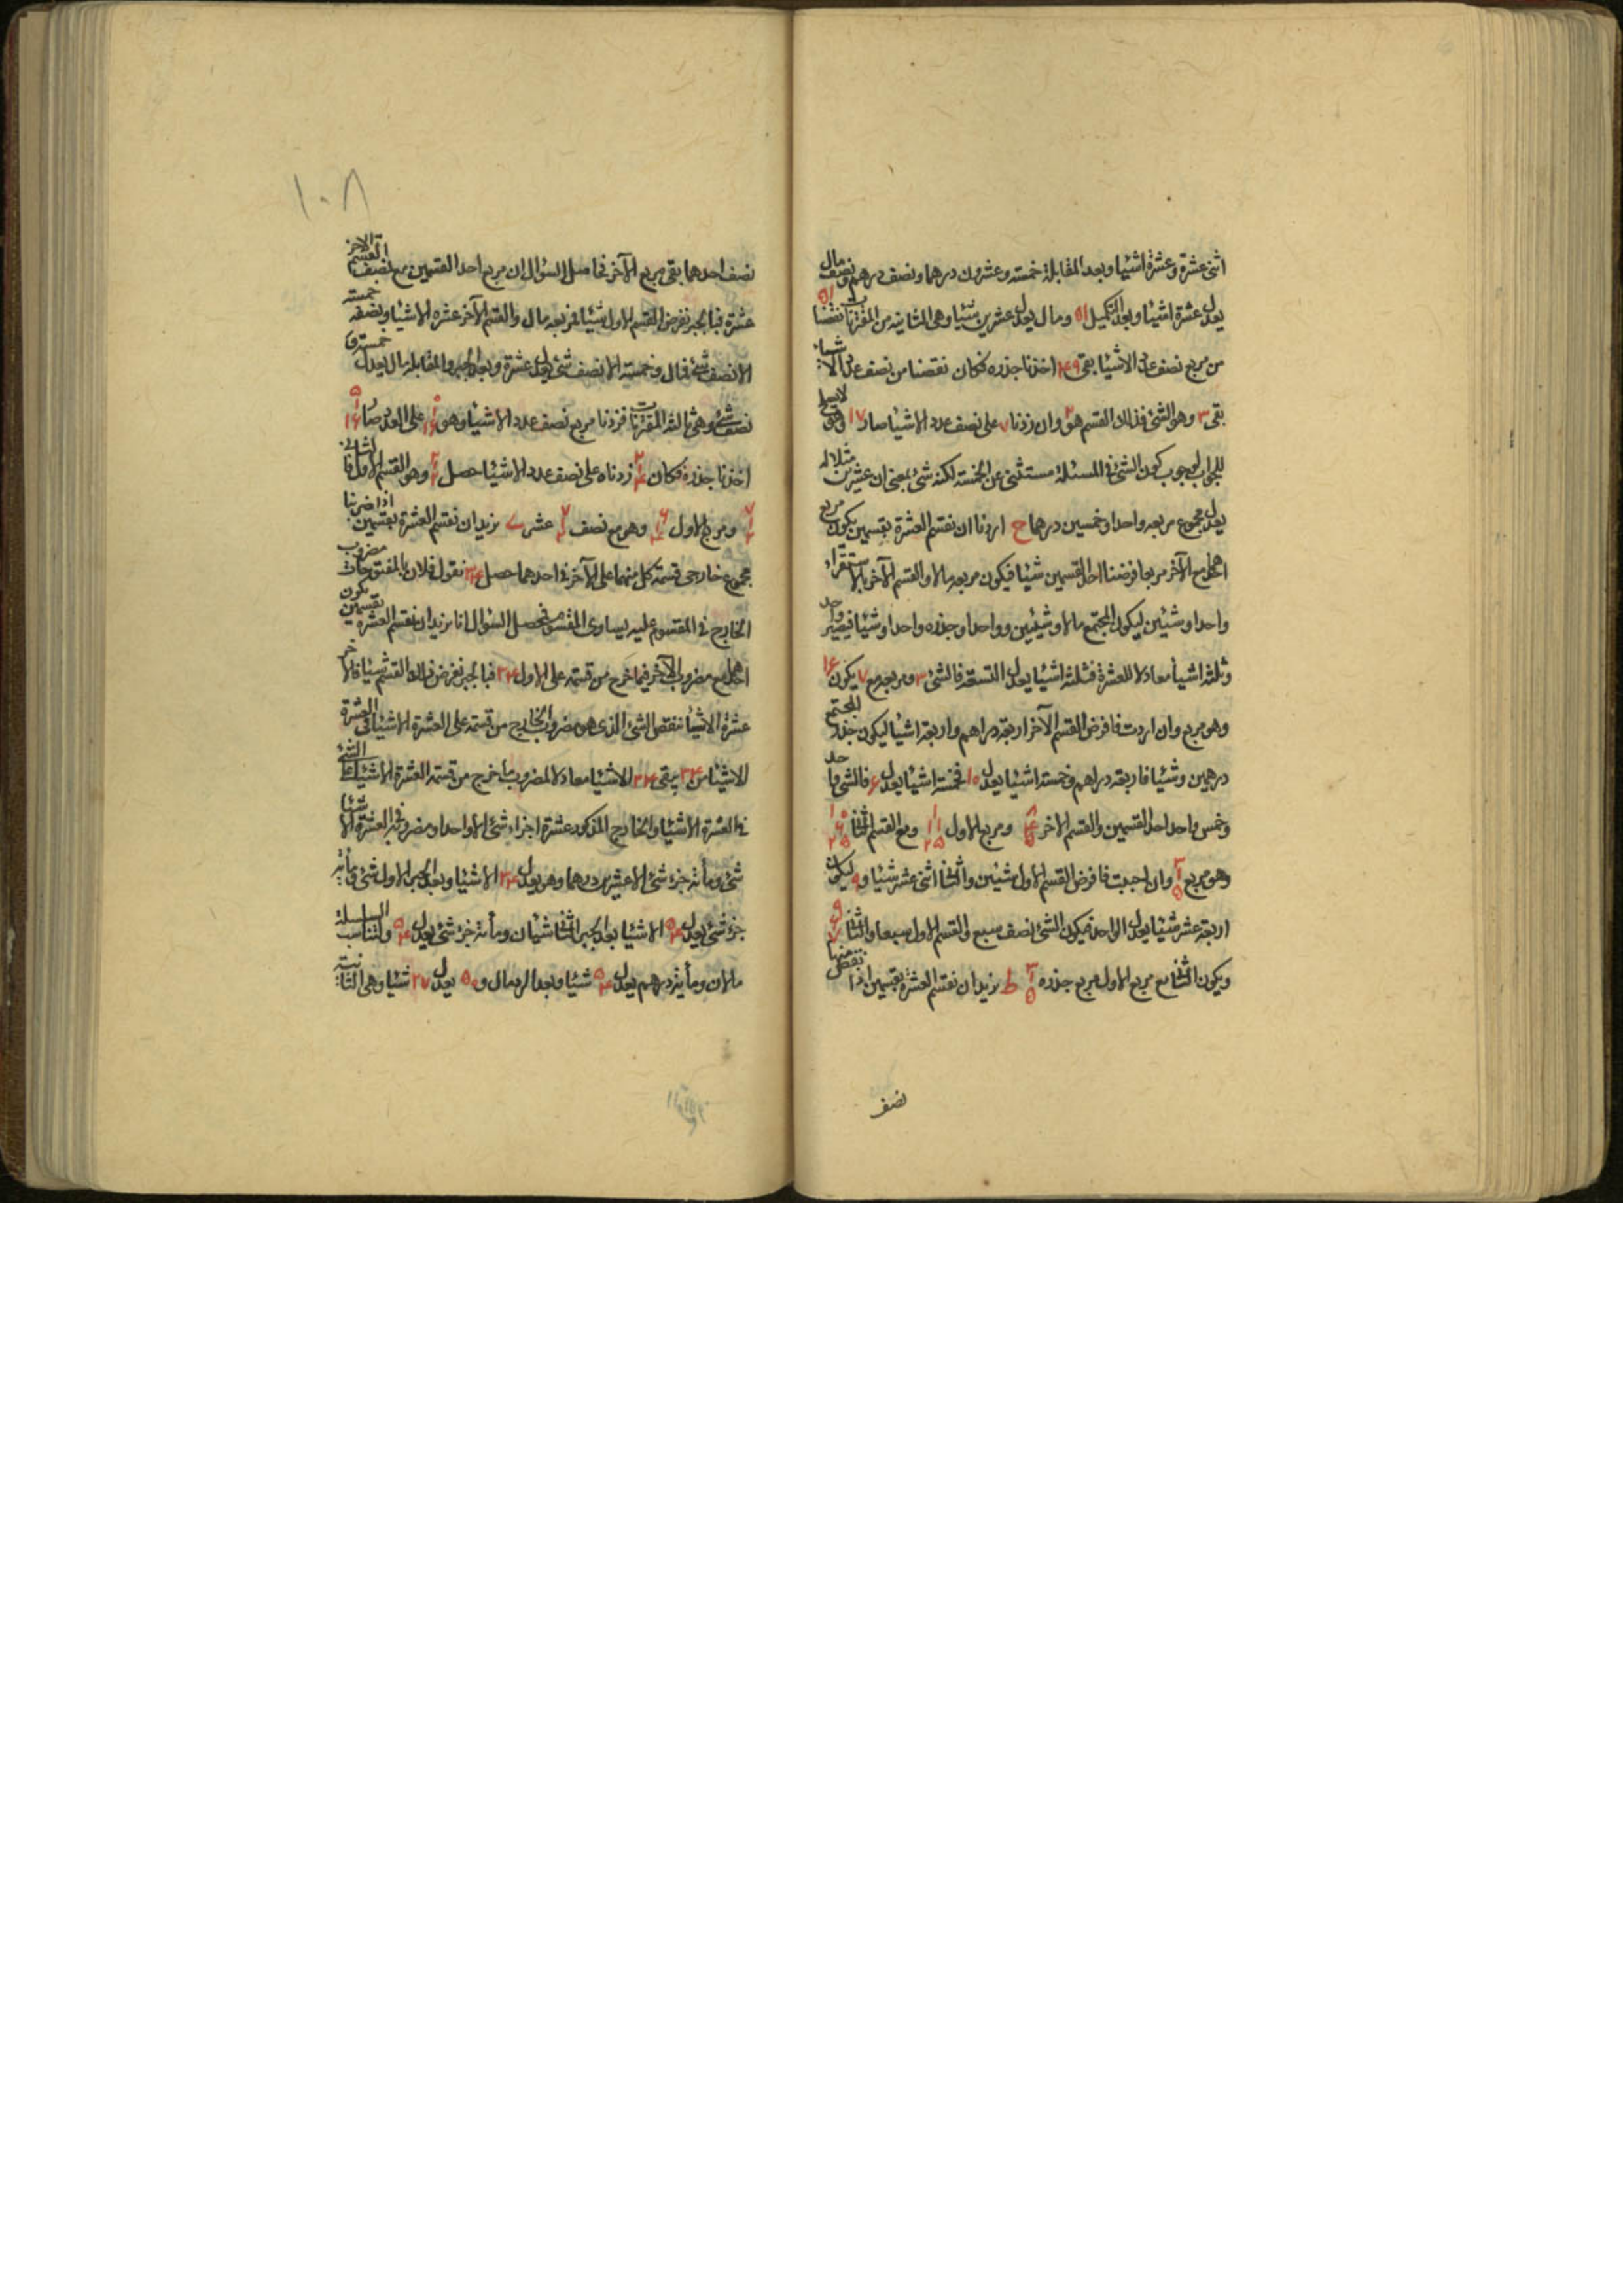 اثنى عشرة وعشرة اشيا وبعد المقابلة خمسة وعشرون درهما ونصف درهم ونصف مال
يعدل عشرة اشيا وبعد التكميل ٥١ ومال يعدل عشرين شيئا وهى الثانية من المقترنات نقصنا ٥١
من مربع نصف عدد الاشيا بقى ٤٩ اخذنا جذره فكان نقصنا من نصف عدد الاشياء
بقى ٣ وهو الشئ فذلك القسم هو وان زدنا ٧ على نصف عدد الاشيا صار ١٧ وهو لا يصلح
للجواب لوجوب كون الشئ فى المسئلة مستثنى عن الخمسة لكنه شئ بمعنى ان عشرين مثلا له
يعدل مجموع مربعه واحدا وخمسين درهما ح اردنا ان نقسم العشرة بقسمين يكون مربع
احدهما مع الآخر مربعا فرضنا احد القسمين شيئا فيكون مربعه مالا والقسم الآخر بالاستقراء
واحدا وشيئين ليكون المجتمع مالا وشيئين وواحدا وجذره واحدا وشيئا فيصير واحد
وثلثة اشيا معادلا للعشرة فثلثة اشيا يعدل التسعة فالشئ ٣ ومربعه مع ٧ يكون ١٦
وهو مربع وان اردت فافرض القسم الآخر اربعة دراهم واربعة اشيا ليكون جذر المجتمع
درهمين وشيئا فاربعة دراهم وخمسة اشيا يعدل ١٠ فخمسة اشيا يعدل ٦ فالشئ واحد
وخمس واحد احد القسمين والقسم الاخر ومربع الاول ومع القسم الثانى
وهو مربع وان احببت فافرض القسم الاول شيئين والثانى اثنى عشر شيئا و ٩ ليكون
اربعة عشر شيئا يعدل الواحد فيكون الشئ نصف سبع والقسم الاول سبعا والثانى
ويكون الثانى مع مربع الاول مربع جذره ط نريد ان نقسم العشرة بقسمين اذا نقص منها
نصف
١٠٨
نصف احدهما بقى مربع الآخر فحاصل السؤال ان مربع احد القسمين مع نصف القسم الآخر
عشرة فبالجبر نفرض القسم الاول شيئا فمربعه مال والقسم الآخر عشرة الا شيئا ونصفه خمسة
الا نصف شئ فمال وخمسة الا نصف شئ يعدل عشرة وبعد الجبر والمقابلة مال يعدل خمسة و
نصف شئ وهى ثالثة المقترنات فزدنا مربع نصف عدد الاشيا وهو على العدد صار
اخذنا جذره فكان زدناه على نصف عدد الاشيا حصل وهو القسم الاول فالثانى
ومربع الاول وهو مع نصف عشر ى نريد ان نقسم العشرة بقسمين اذا ضربنا
مجموع خارجى قسمة كل منهما على الآخر فى احدهما حصل ٣٤ نقول فلان بالمفتوحات مضروب
الخارج فى المقسوم عليه يساوى المقسوم فحصل السؤال انا نريد ان نقسم العشرة بقسمين يكون
احدهما مع مضروب الآخر فيما خرج من قسمته على الاول ٣٤ فبالجبر نفرض ذلك القسم شيئا فالآخر
عشرة الا شيئا ننقص الشئ الذى هو مضروب الخارج من قسمته على العشرة الا شيئا فى العشرة
الا شيئا من ٣٤ يبقى ٣٤ الا شيئا معادلا لمضروب ما خرج من قسمة العشرة الا شيئا على الشئ
فى العشرة الا شيئا والخارج المذكور عشرة اجزاء شئ الا واحدا ومضروبه فى العشرة الا شيئا
شئ ومائة جزء شئ الا عشرين درهما وهو يعدل ٣٤ الا شيئا وبعد الجبر الاول شئ ومائة
جزء شئ يعدل ٥٤ الا شيئا بعد الجبر الثانى شيئان ومائة جزء شئ يعدل ٥٤ ولتناسب السلسلة
مالان ومائة درهم يعدل ٥٤ شيئا وبعد الرد مال و ٥٠ يعدل ٢٧ شيئا وهى الثانية